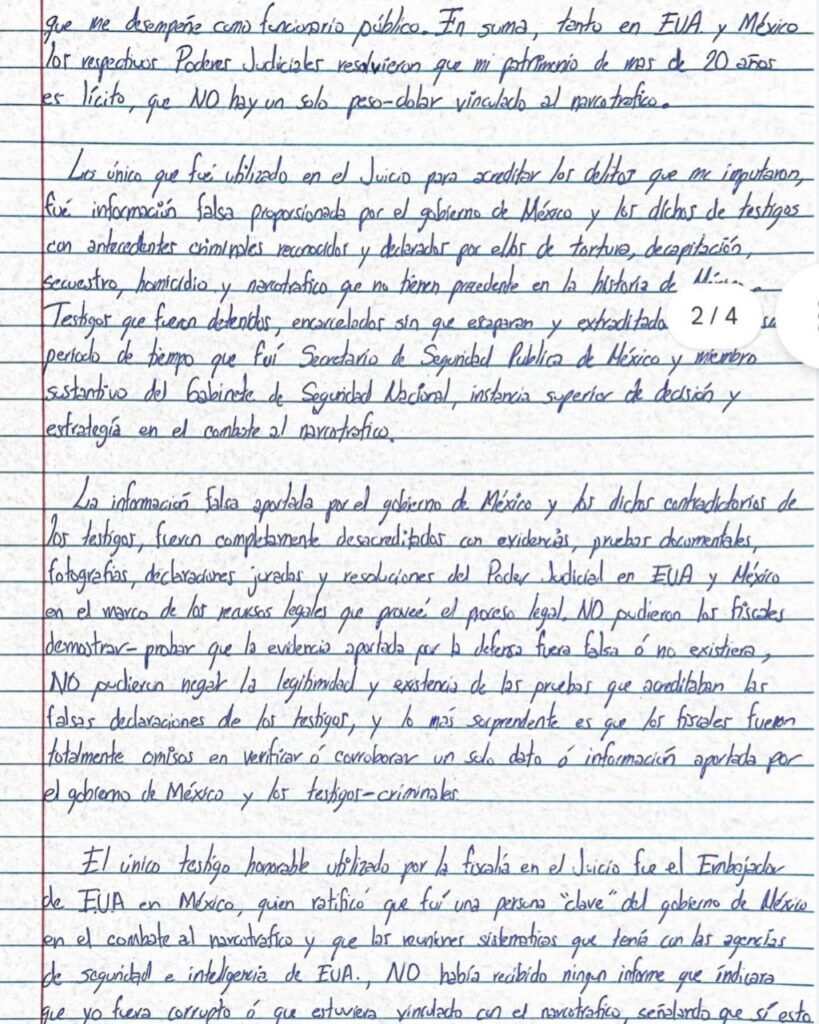 que me desempeñe como funcionario público. En suma, tanto en EUA y México
los respectivos Poderes Judiciales resolvieron que mi patrimonio de mas de 20 años
es lícito, que NO hay un solo peso-dolar vinculado al narcotrafico.
Lo único que fué utilizado en el Juicio para acreditar los delitos que me imputaron,
fué información falsa proporsionada por el gobierno de México y los dichos de testigos
con antecedentes criminales reconocidos y declarados por ellos de tortura, decapitación,
secuestro, homicidio y narcotrafico que no tienen precedente en la historia de
Testigos que fueron detenidos, encarcelados sin que escaparan y
2/4
periodo de tiempo que fuí Secretario de Seguridad Publica de México y miembro
sustantivo del Gabinete de Seguridad Nacional, instancia superior de decisión y
estrategía en el combate al narcotrafico.
La información falsa aportada por el gobierno de México y los dichos contradictorios de
los testigos, fueron completamente desacreditados con evidencias, pruebas documentales,
fotografias, declaraciones juradas y resoluciones del Poder Judicial en EUA y México
en el marco de los recursos legales que proveé el proceso legal. NO pudieron los fiscales
demostrar-probar que la evidencia aportada por la defensa fuera falsa ó no existiera,
NO pudieron negar la legitimidad y existencia de las pruebas que acreditaban las
falsas declaraciones de los testigos, y lo más sorprendente es que los fiscales fueron
totalmente omisos en verificar ó corroborar un solo dato ó información aportada por
el gobierno de México y los testigos-criminales.
El único testigo honorable utilizado por la fiscalía en el Juicio fue el Embajador
de EUA en México, quien ratificó que fuí una persona "clave" del gobierno de México
en el combate al narcotrafico y que las reuniones sistematicas que tenía con las agencias
de seguridad e inteligencia de EUA., NO había recibido ningun informe que indicara
que yo fuera corrupto ó que estuviera vinculado con el narcotrafico, señalando que sí esto